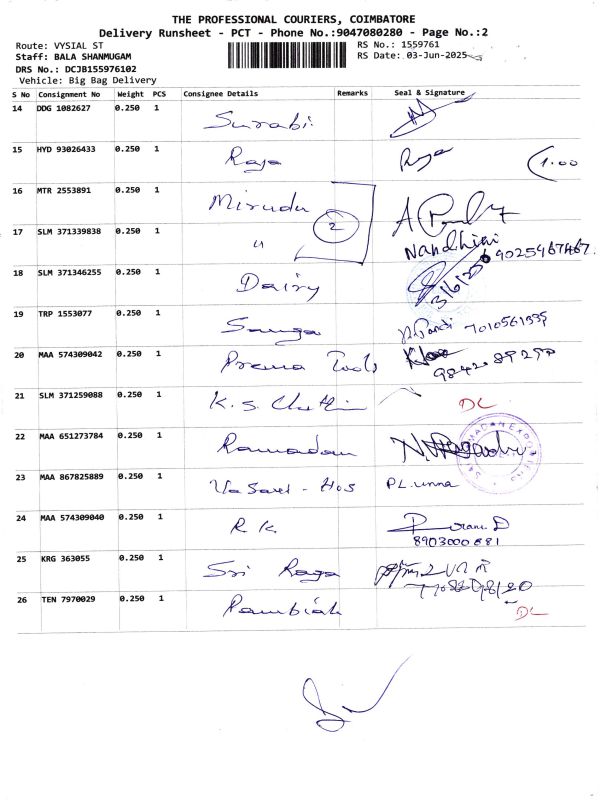 THE PROFESSIONAL COURIERS, COIMBATORE
Delivery Runsheet - PCT - Phone No.:9047080280 - Page No.:2
Route: VYSIAL ST
RS No.: 1559761
Staff: BALA SHANMUGAM
RS Date: 03-Jun-2025
DRS No.: DCJB155976102
Vehicle: Big Bag Delivery
S No Consignment No Weight PCS Consignee Details Remarks Seal & Signature
14 DDG 1082627 0.250 1 Surabi
15 HYD 93026433 0.250 1 Raja Raja 1.00
16 MTR 2553891 0.250 1 Mirudu
2
17 SLM 371339838 0.250 1 " Nandhini 9025467467.
18 SLM 371346255 0.250 1 Dairy 3/6/25
19 TRP 1553077 0.250 1 7010561339
20 MAA 574309042 0.250 1 Prema Tools
9842089290
21 SLM 371259088 0.250 1 K.S. DL
22 MAA 651273784 0.250 1 Ramadan
23 MAA 867825889 0.250 1 - Hos PL.unna
24 MAA 574309040 0.250 1 R K
8903000681
25 KRG 363055 0.250 1 Sri Raga
26 TEN 7970029 0.250 1 Pambiah DL